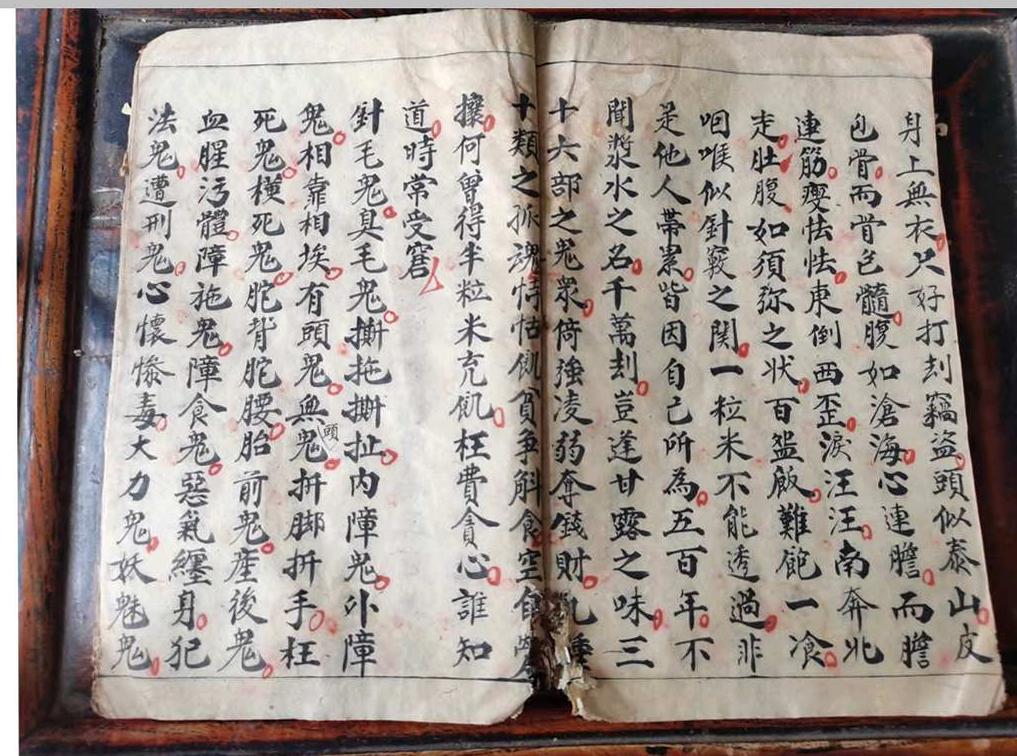 身上無衣只好打刦竊盜頭似泰山皮
包骨而骨包髓腹如滄海心連膽而膽
連筋瘿怯怯東倒西歪淚汪汪南奔北
走肚腹如須弥之状百盌飯難飽一飡
咽喉似針竅之関一粒米不能透過非
是他人帶累皆因自己所為五百年不
聞漿水之名千萬刦豈逢甘露之味三
十六部之鬼衆倚強凌弱奪錢財九種
十類之孤魂恃怙飢貧争斛食空自
攘何曾得半粒米充飢枉費貪心誰知
道時常受窘
針毛鬼臭毛鬼撕拖撕扯内障鬼外障
鬼相靠相埃有頭鬼無頭鬼拚脚拚手枉
死鬼横死鬼胞背胞腰胎前鬼産後鬼
血腥污體障施鬼障食鬼惡氣纏身犯
法鬼遭刑鬼心懷慘毒大力鬼妖魅鬼